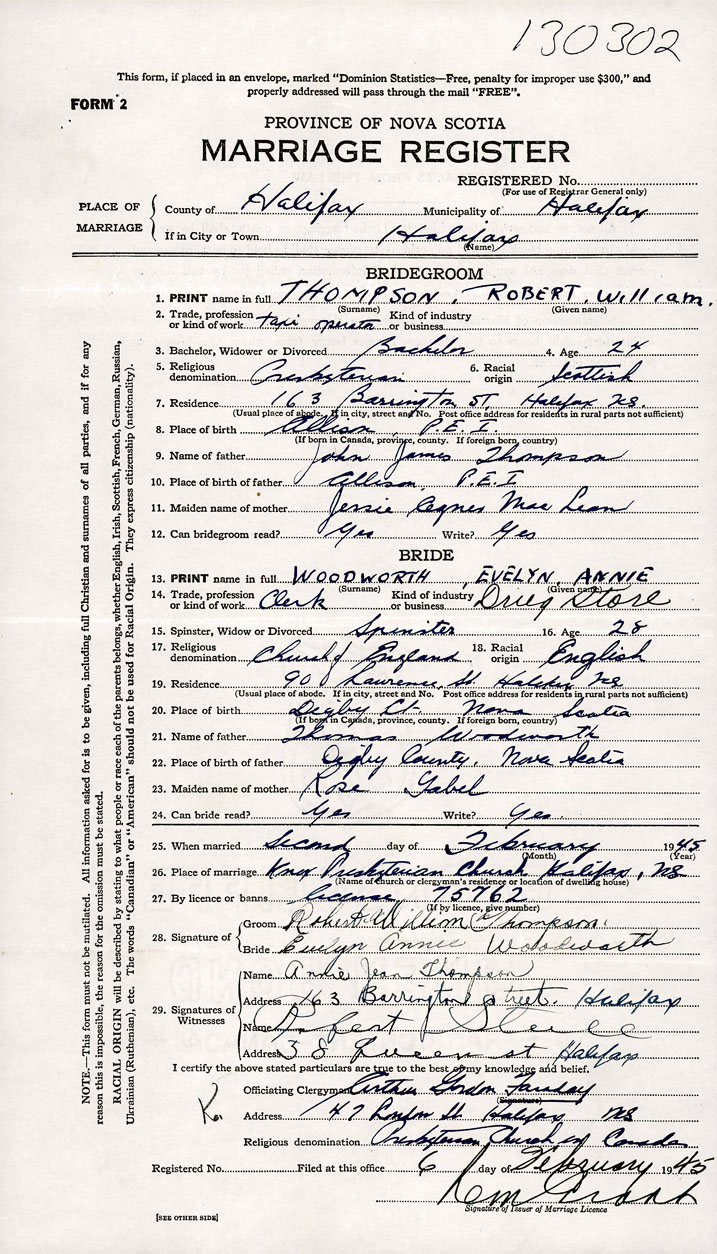 130302
This form, if placed in an envelope, marked "Dominion Statistics—Free, penalty for improper use $300," and
properly addressed will pass through the mail "FREE".
FORM 2
PROVINCE OF NOVA SCOTIA
MARRIAGE REGISTER
REGISTERED No.
(For use of Registrar General only)
PLACE OF MARRIAGE
County of Halifax Municipality of Halifax
If in City or Town Halifax
(Name)
BRIDEGROOM
1. PRINT name in full THOMPSON, ROBERT, William.
(Surname) (Given name)
2. Trade, profession or kind of work taxi operator Kind of industry or business
3. Bachelor, Widower or Divorced Bachelor 4. Age 24
5. Religious denomination Presbyterian 6. Racial origin Scottish
7. Residence 163 Barrington ST Halifax NS.
(Usual place of abode. If in city, street and No. Post office address for residents in rural parts not sufficient)
8. Place of birth Allison P.E.I.
(If born in Canada, province, county. If foreign born, country)
9. Name of father John James Thompson
10. Place of birth of father Allison, P.E.I
11. Maiden name of mother Jessie Agnes Mac Lean
12. Can bridegroom read? Yes Write? Yes
BRIDE
13. PRINT name in full WOODWORTH, EVELYN, ANNIE
(Surname) (Given name)
14. Trade, profession or kind of work Clerk Kind of industry or business Drug Store
15. Spinster, Widow or Divorced Spinster 16. Age 28
17. Religious denomination Church of England 18. Racial origin English
19. Residence 90 Lawrence St Halifax NS
(Usual place of abode. If in city, street and No. Post office address for residents in rural parts not sufficient)
20. Place of birth Digby Ct. Nova Scotia
(If born in Canada, province, county. If foreign born, country)
21. Name of father Thomas Woodworth
22. Place of birth of father Digby County, Nova Scotia
23. Maiden name of mother Rose Gabel
24. Can bride read? Yes Write? Yes.
25. When married Second day of February 1945
(Month) (Year)
26. Place of marriage Knox Presbyterian Church Halifax, NS
(Name of church or clergyman's residence or location of dwelling house)
27. By licence or banns license 75762
(If by licence, give number)
28. Signature of
Groom Robert William Thompson.
Bride Evelyn Annie Woodworth
29. Signatures of Witnesses
Name Annie Jean Thompson
Address 163 Barrington Street. Halifax
Name
Address 38 Queen st Halifax
I certify the above stated particulars are true to the best of my knowledge and belief.
Officiating Clergyman Arthur Gordon Faraday
(Signature)
K.
Address 47 London St Halifax NS
Religious denomination Presbyterian Church in Canada
Registered No. Filed at this office 6 day of February 1945
Grant
Signature of Issuer of Marriage Licence
[SEE OTHER SIDE]
NOTE.—This form must not be mutilated. All information asked for is to be given, including full Christian and surnames of all parties, and if for any
reason this is impossible, the reason for the omission must be stated.
RACIAL ORIGIN will be described by stating to what people or race each of the parents belongs, whether English, Irish, Scottish, French, German, Russian,
Ukrainian (Ruthenian), etc. The words "Canadian" or "American" should not be used for Racial Origin. They express citizenship (nationality).